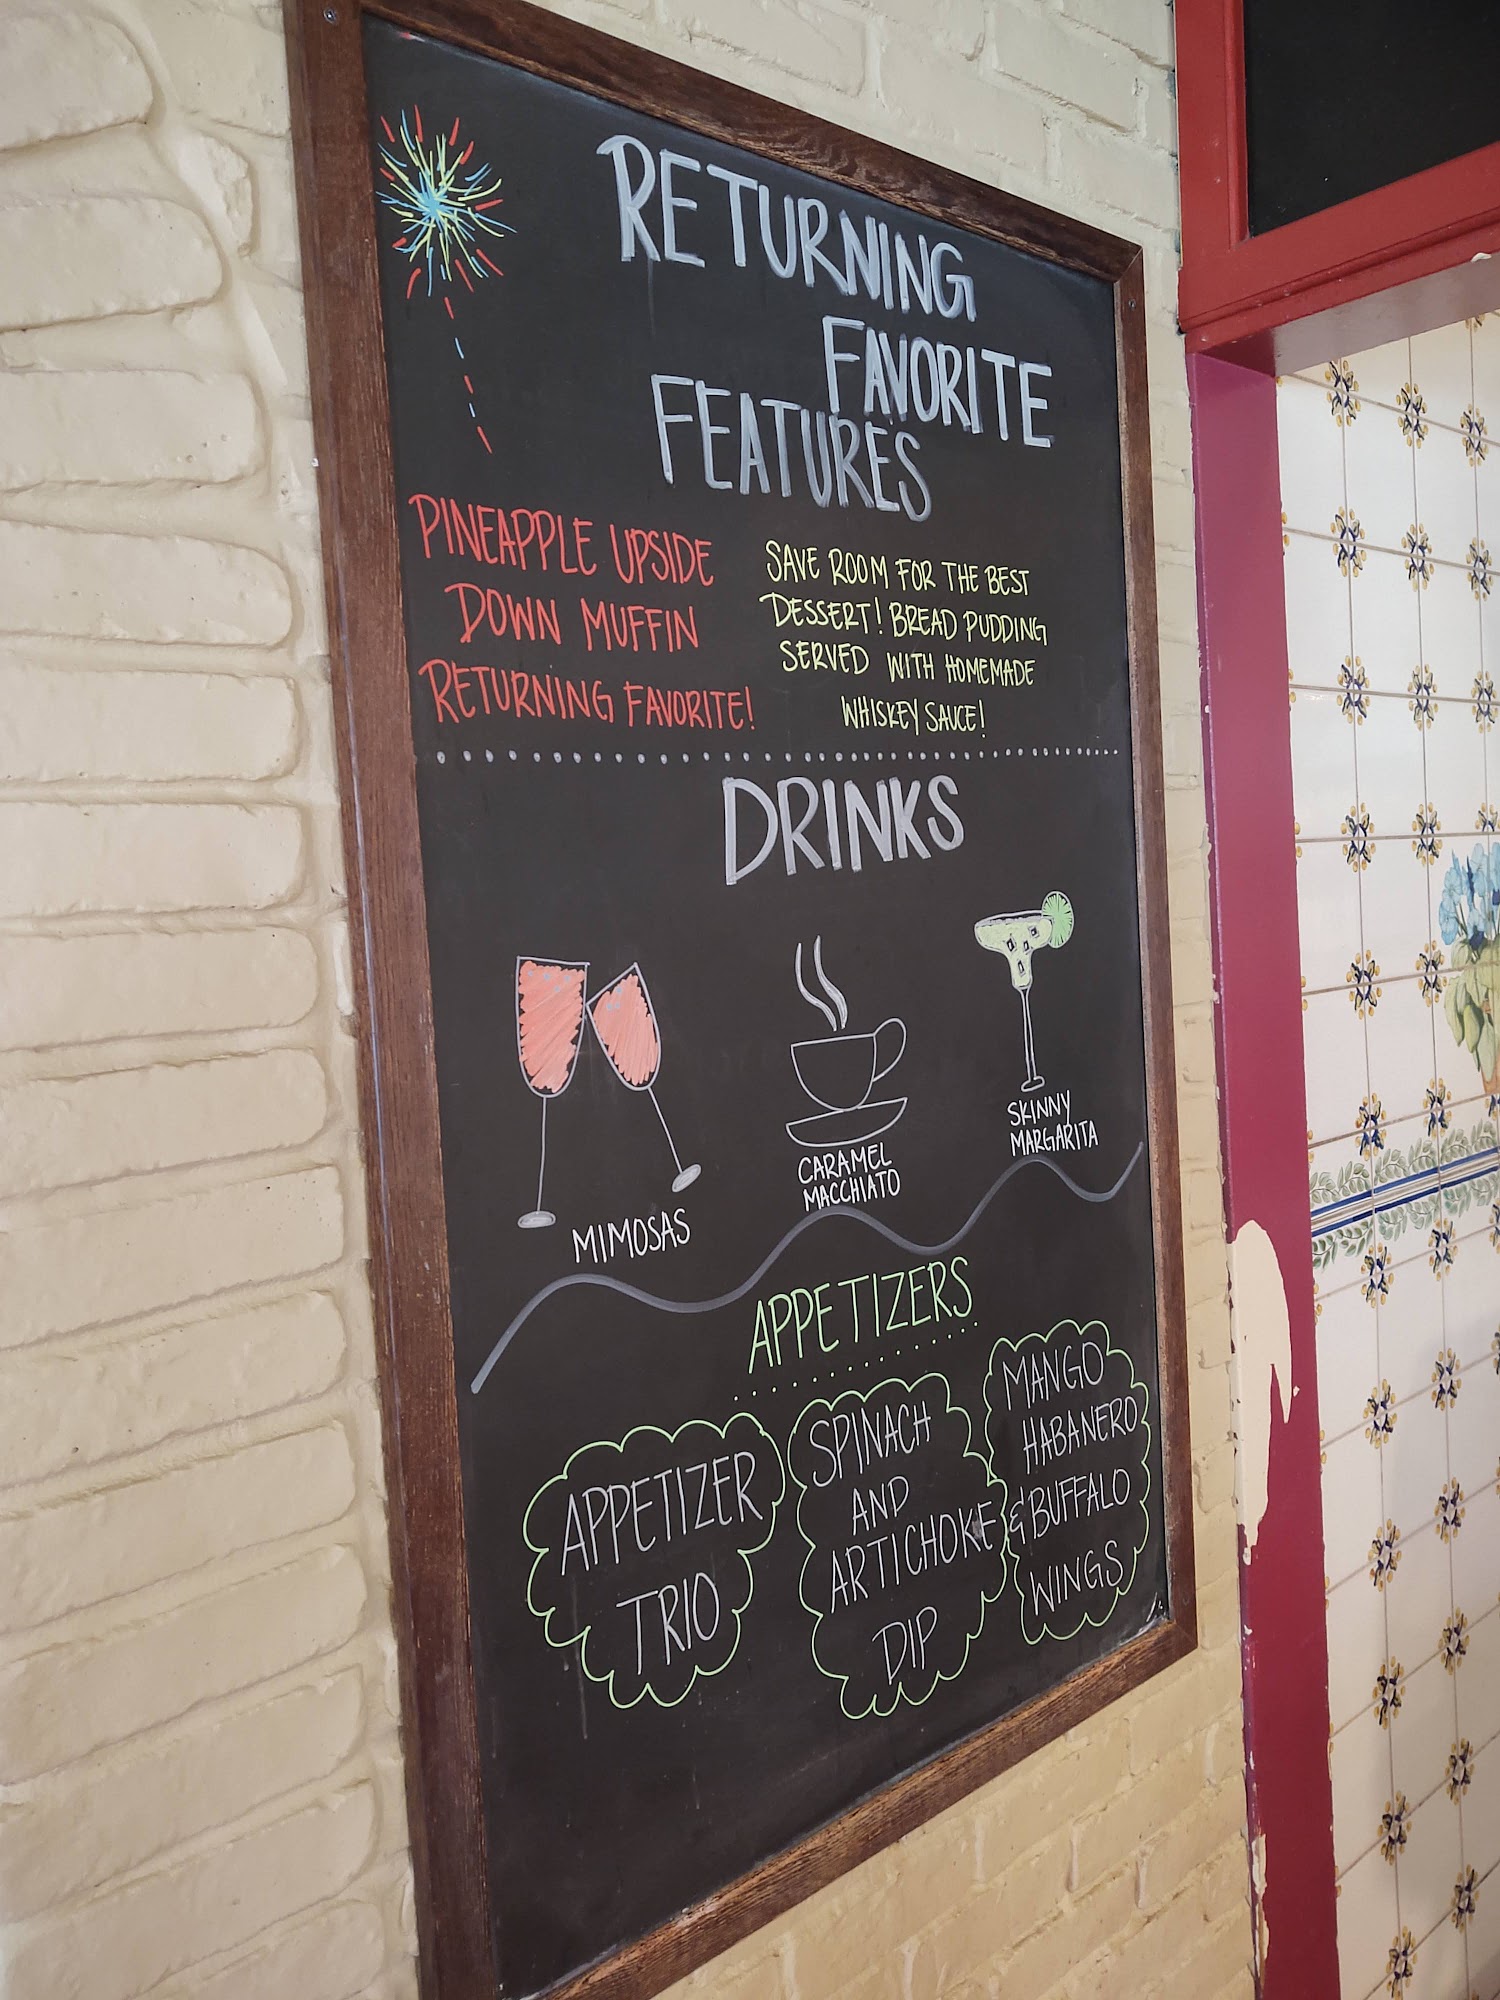 RETURNING
FAVORITE
FEATURES
PINEAPPLE UPSIDE
DOWN MUFFIN
RETURNING FAVORITE!
SAVE ROOM FOR THE BEST
DESSERT! BREAD PUDDING
SERVED WITH HOMEMADE
WHISKEY SAUCE!
DRINKS
MIMOSAS
CARAMEL
MACCHIATO
SKINNY
MARGARITA
APPETIZERS
APPETIZER
TRIO
SPINACH
AND
ARTICHOKE
DIP
MANGO
HABANERO
& BUFFALO
WINGS